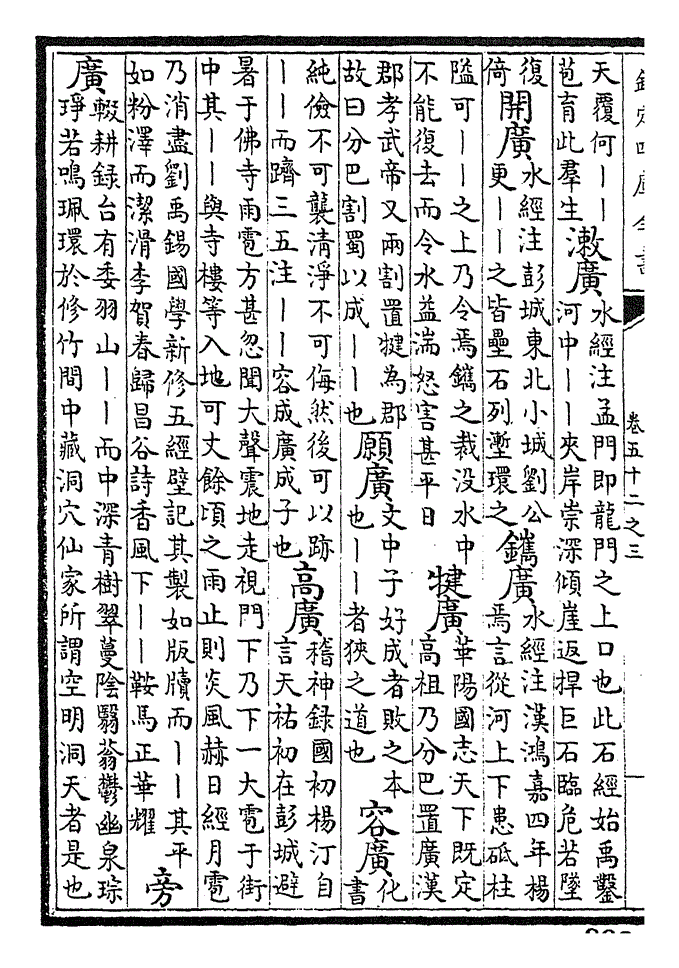 欽定四庫全書
卷五十二之三
天覆何丨丨
苞育此羣生
漱廣
水經注孟門即龍門之上口也此石經始禹鑿
河中丨丨夾岸崇深傾崖返捍巨石臨危若墜
復
倚
開廣
水經注彭城東北小城劉公
更丨丨之皆壘石列壍環之
鑴廣
水經注漢鴻嘉四年楊
焉言從河上下患砥柱
隘可丨丨之上乃令焉鑴之裁没水中
不能復去而令水益湍怒害甚平日
犍廣
華陽國志天下既定
高祖乃分巴置廣漢
郡孝武帝又兩割置犍為郡
故曰分巴割蜀以成丨丨也
願廣
文中子好成者敗之本
也丨丨者狹之道也
容廣
化
書
純儉不可襲清淨不可侮然後可以跡
丨丨而躋三五注丨丨容成廣成子也
高廣
稽神錄國初楊汀自
言天祐初在彭城避
暑于佛寺雨雹方甚忽聞大聲震地走視門下乃下一大雹于街
中其丨丨與寺樓等入地可丈餘頃之雨止則炎風赫日經月雹
乃消盡劉禹錫國學新修五經壁記其製如版牘而丨丨其平
如粉澤而潔滑李賀春歸昌谷詩香風下丨丨鞍馬正華耀
旁
廣
輟耕錄台有委羽山丨丨而中深青樹翠蔓陰翳蓊鬱幽泉琮
琤若鳴珮環於修竹間中藏洞穴仙家所謂空明洞天者是也